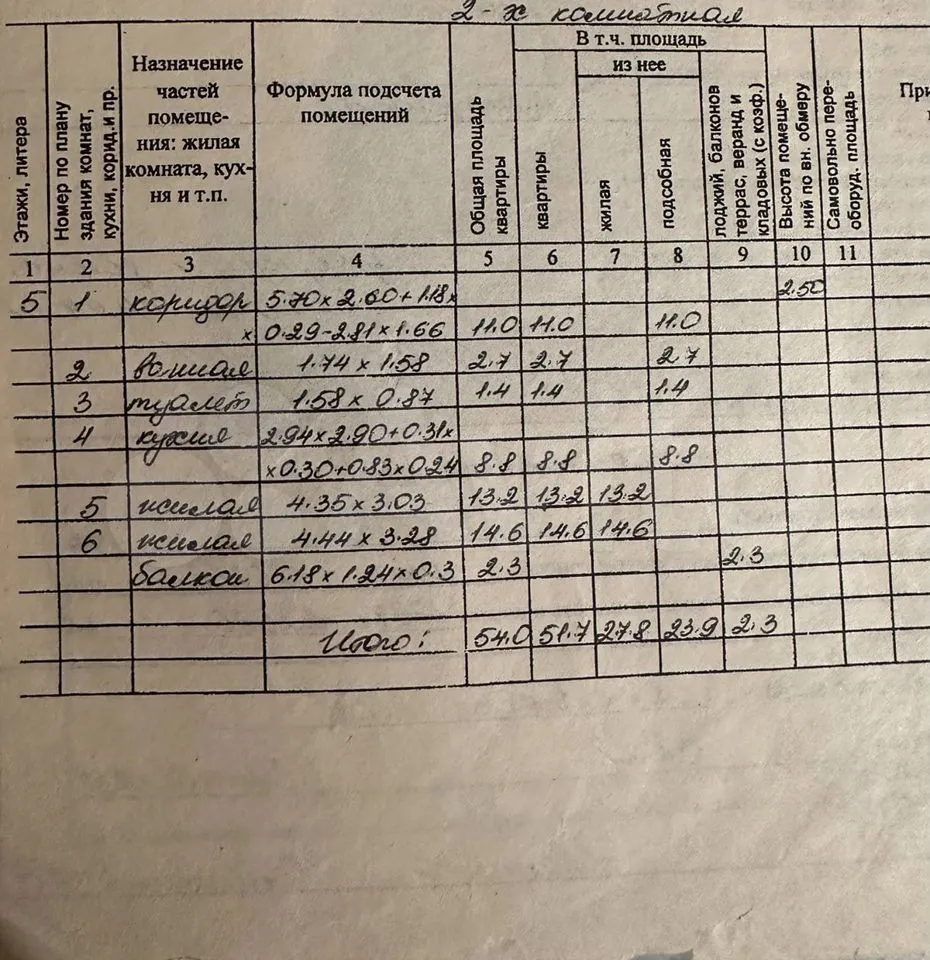 2-х комнатная
Этажи, литера
Номер по плану здания комнат, кухни, корид. и пр.
Назначение частей помеще-ния: жилая комната, кух-ня и т.п.
Формула подсчета помещений
Общая площадь квартиры
В т.ч. площадь
квартиры
из нее
жилая
подсобная
лоджий, балконов террас, веранд и кладовых (с коэф.)
Высота помеще-ний по вн. обмеру
Самовольно пере-оборуд. площадь
При
1 2 3 4 5 6 7 8 9 10 11
5 1 коридор 5.70 x 2.60 + 1.18 x 2.50
x 0.29 - 2.81 x 1.66 11.0 11.0 11.0
2 ванная 1.74 x 1.58 2.7 2.7 2.7
3 туалет 1.58 x 0.87 1.4 1.4 1.4
4 кухня 2.94 x 2.90 + 0.31 x
x 0.30 + 0.83 x 0.24 8.8 8.8 8.8
5 жилая 4.35 x 3.03 13.2 13.2 13.2
6 жилая 4.44 x 3.28 14.6 14.6 14.6
балкон 6.18 x 1.24 x 0.3 2.3 2.3
Итого: 54.0 51.7 27.8 23.9 2.3